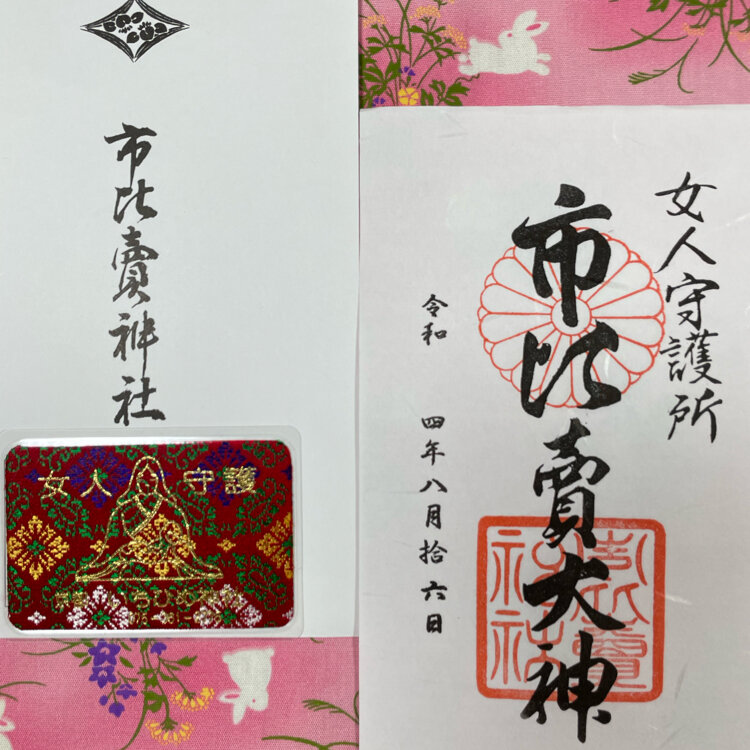 市比賣神社
女人 守護
女人守護所
市比賣大神
令和 四年八月拾六日
市比賣
神社